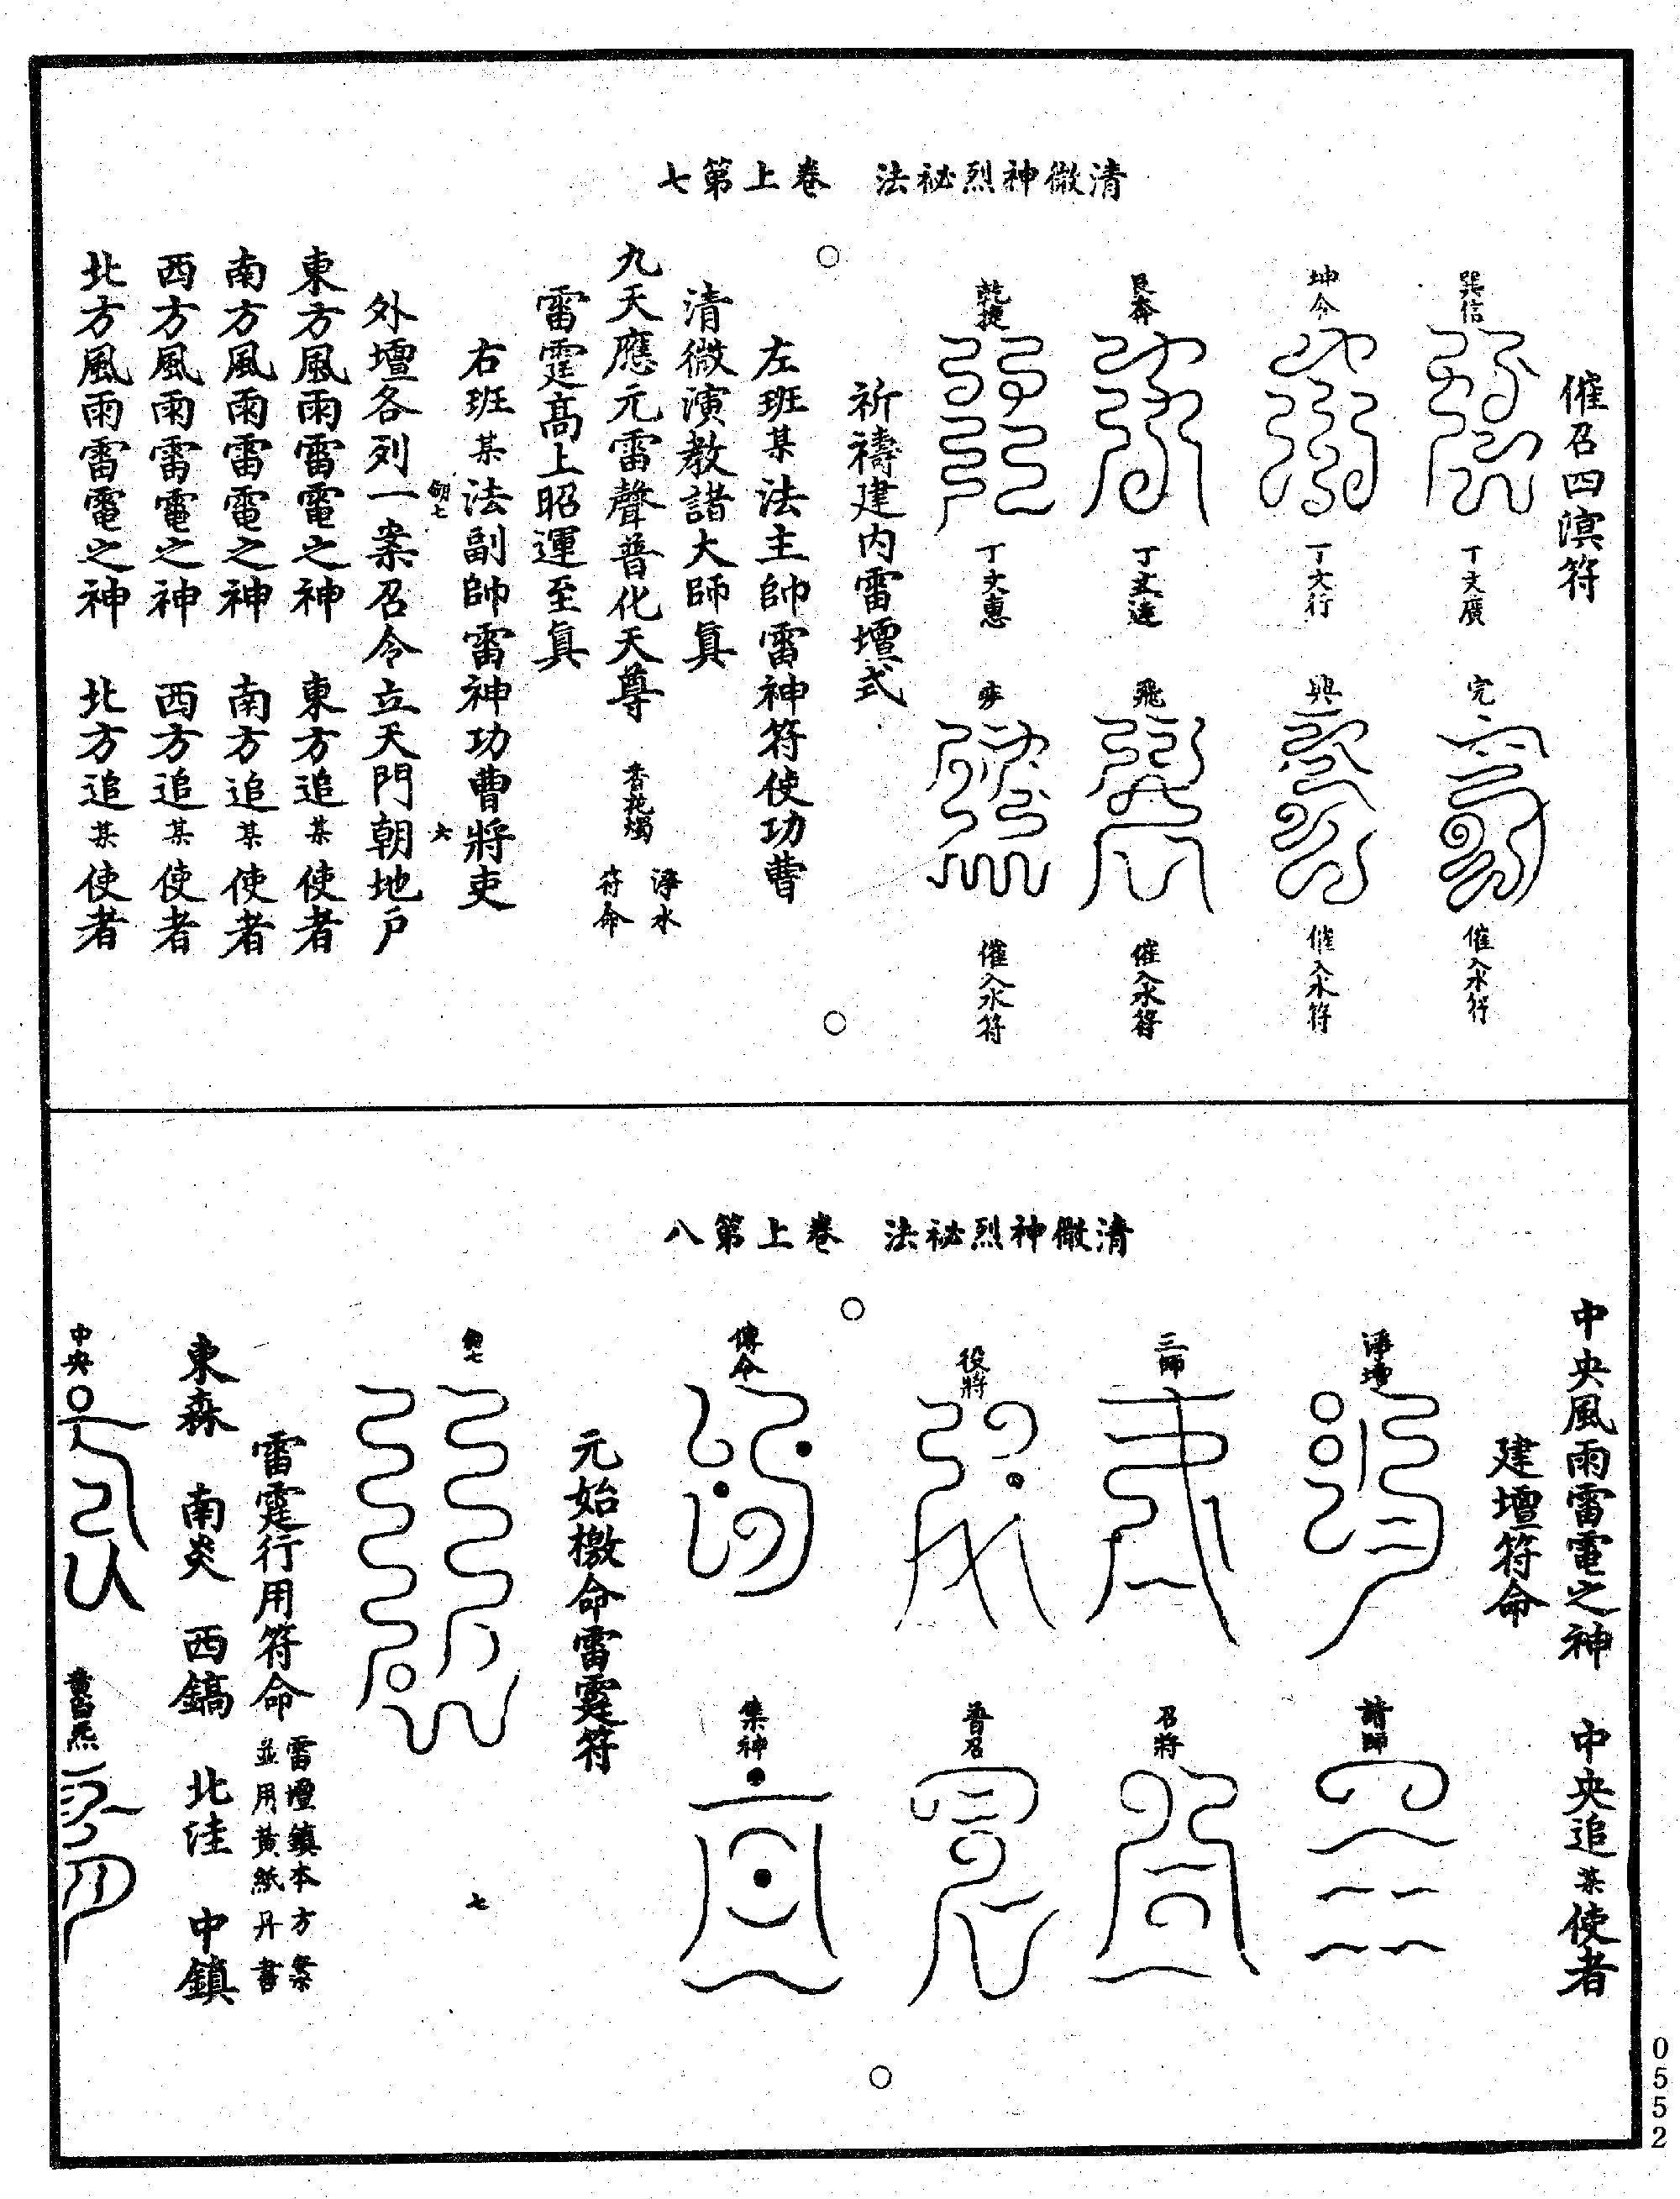 清微神烈祕法　卷上第七
催召四溟符
巽信
丁文廣
完
催入水符
坤令
丁文行
興
催入水符
艮奔
丁文達
飛
催入水符
乾捷
丁文惠
催入水符
祈禱建內雷壇式
左班某法主帥雷神符使功曹
清微演教諸大師真
九天應元雷聲普化天尊　香花燭　淨水　符命
雷霆高上昭運至真
右班某法副帥雷神功曹將吏
外壇各列一案召令立天門朝地戶
東方風雨雷電之神　東方追某使者
南方風雨雷電之神　南方追某使者
西方風雨雷電之神　西方追某使者
北方風雨雷電之神　北方追某使者
六
清微神烈祕法　卷上第八
中央風雨雷電之神　中央追某使者
建壇符命
淨壇
請師
三師
召將
役將
普召
傳令
集神
元始檄命雷霆符
七
雷霆行用符命　雷壇鎮本方案
並用黃紙丹書
東森　南炎　西鎬　北洼　中鎮
中央
黃自炁
0552